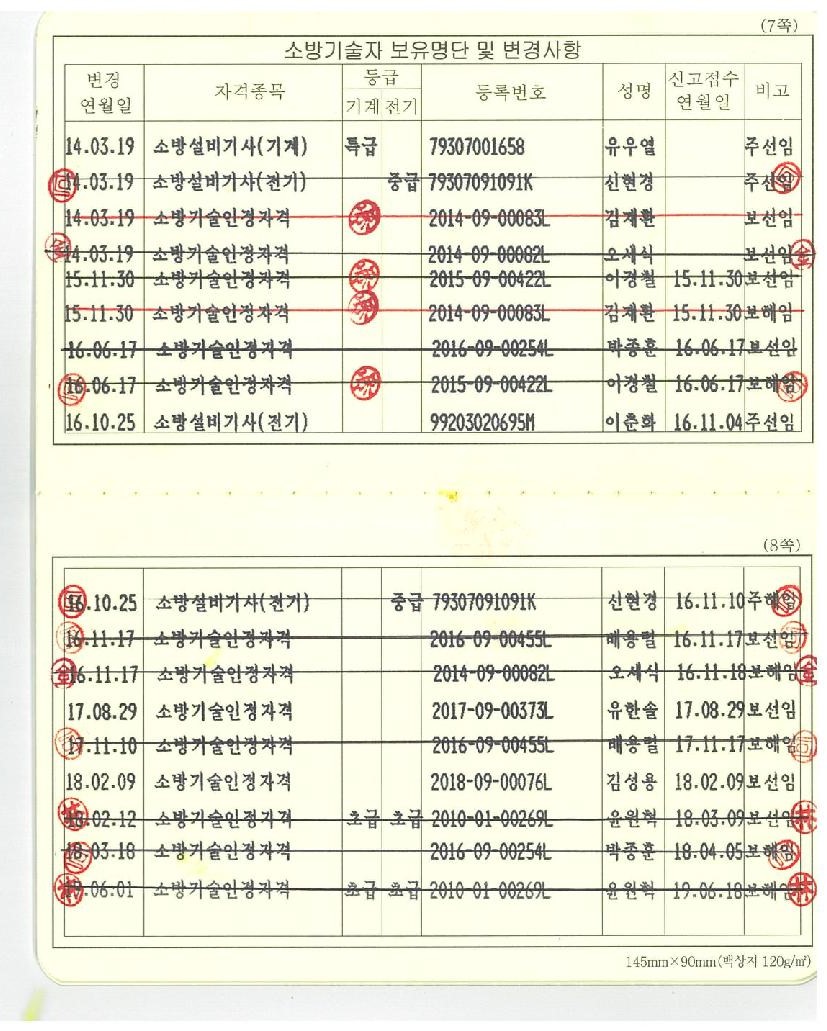 (7쪽)
소방기술자 보유명단 및 변경사항
변경 연월일 자격종목 등급 기계 전기 등록번호 성명 신고접수 연월일 비고
14.03.19 소방설비기사(기계) 특급 79307001658 유우열 주선임
14.03.19 소방설비기사(전기) 중급 79307091091K 신현경 주선임
14.03.19 소방기술인정자격 2014-09-00083L 김재환 보선임
14.03.19 소방기술인정자격 2014-09-00082L 오세식 보선임
15.11.30 소방기술인정자격 2015-09-00422L 이경철 15.11.30 보선임
15.11.30 소방기술인정자격 2014-09-00083L 김재환 15.11.30 보해임
16.06.17 소방기술인정자격 2016-09-00254L 박종훈 16.06.17 보선임
16.06.17 소방기술인정자격 2015-09-00422L 이경철 16.06.17 보해임
16.10.25 소방설비기사(전기) 99203020695M 이춘화 16.11.04 주선임
(8쪽)
16.10.25 소방설비기사(전기) 중급 79307091091K 신현경 16.11.10 주해임
16.11.17 소방기술인정자격 2016-09-00455L 배용렬 16.11.17 보선임
16.11.17 소방기술인정자격 2014-09-00082L 오세식 16.11.18 보해임
17.08.29 소방기술인정자격 2017-09-00373L 유한솔 17.08.29 보선임
17.11.10 소방기술인정자격 2016-09-00455L 배용렬 17.11.17 보해임
18.02.09 소방기술인정자격 2018-09-00076L 김성용 18.02.09 보선임
18.02.12 소방기술인정자격 초급 초급 2010-01-00269L 윤원혁 18.03.09 보선임
18.03.18 소방기술인정자격 2016-09-00254L 박종훈 18.04.05 보해임
19.06.01 소방기술인정자격 초급 초급 2010-01-00269L 윤원혁 19.06.18 보해임
145mm×90mm(백상지 120g/㎡)